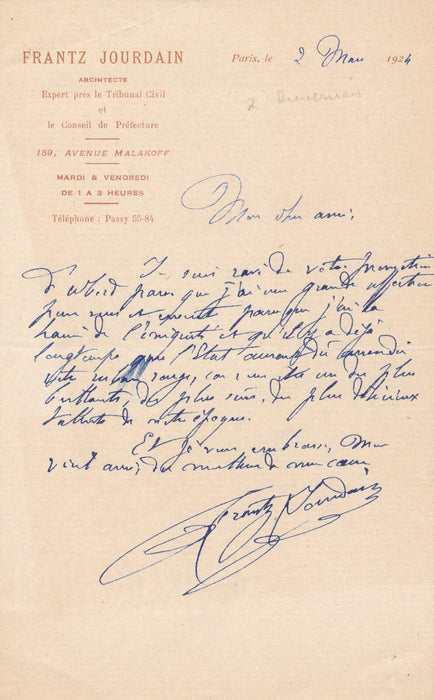 FRANTZ JOURDAIN
ARCHITECTE
Expert près le Tribunal Civil
et
le Conseil de Préfecture
159, AVENUE MALAKOFF
MARDI & VENDREDI
DE 1 A 3 HEURES
Téléphone : Passy 55-84
Paris, le 2 Mai 1924
Mon cher ami,
Je suis ravi de votre promotion
d'abord parce que j'ai une grande affection
pour vous et ensuite parce que j'ai la
haine de l'iniquité et qu'il y a déjà
longtemps que l'Etat aurait dû
votre ruban rouge, car vous êtes un des plus
brillants, des plus sûrs, des plus délicieux
talents de notre époque.
Et je vous embrasse, mon
vieil ami, du meilleur de mon cœur,
Frantz Jourdain